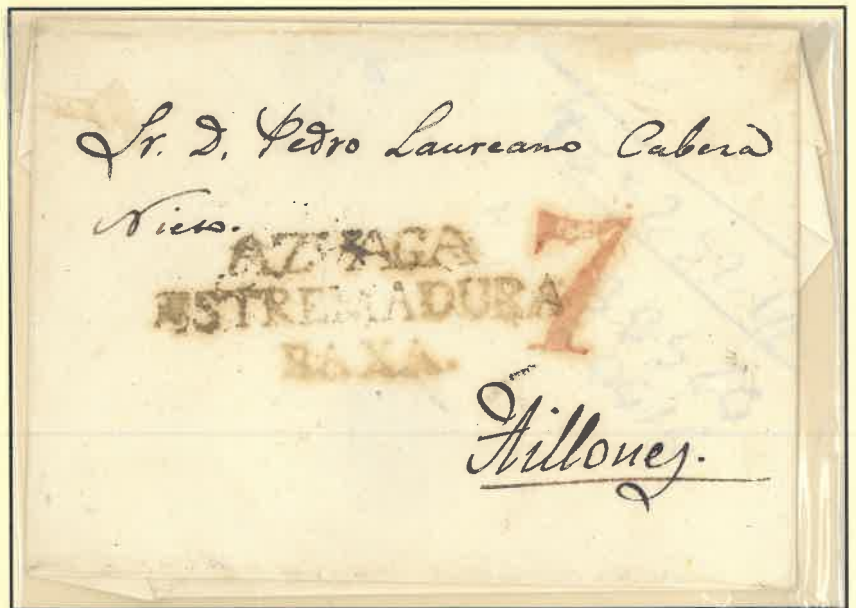 Sr. D. Pedro Laureano Cabeza
Nieto.
AZUAGA
ESTREMADURA
BAXA.
7
Aillones.